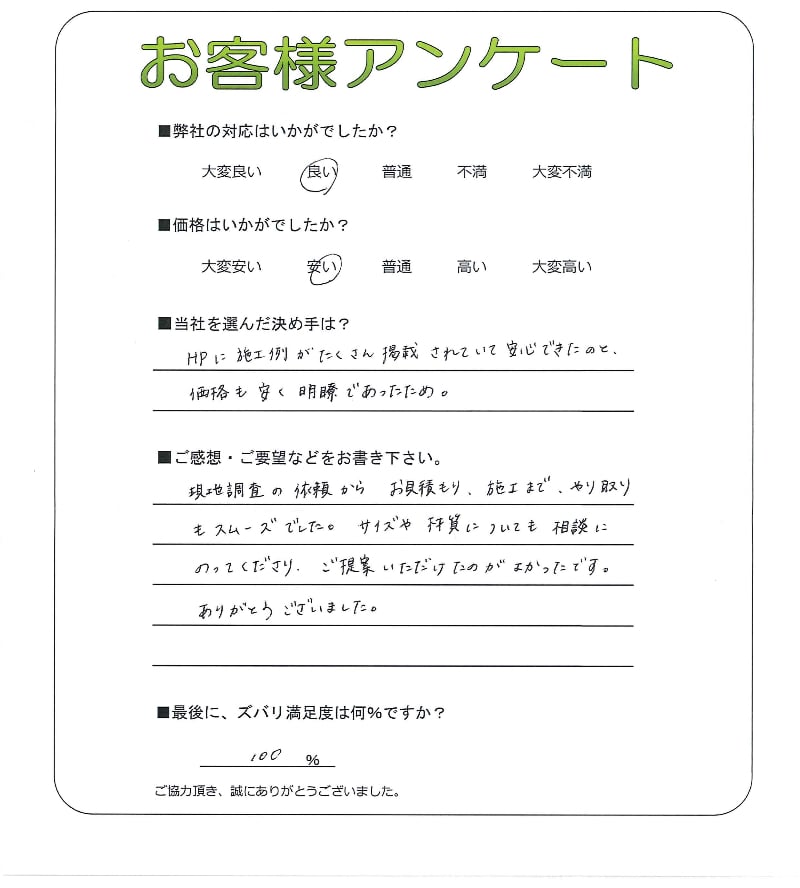 お客様アンケート
■弊社の対応はいかがでしたか？
大変良い 良い 普通 不満 大変不満
■価格はいかがでしたか？
大変安い 安い 普通 高い 大変高い
■当社を選んだ決め手は？
HPに施工例がたくさん掲載されていて安心できたのと、
価格も安く明瞭であったため。
■ご感想・ご要望などをお書き下さい。
現地調査の依頼から お見積もり、施工まで、やり取り
もスムーズでした。サイズや材質についても相談に
のってくださり、ご提案いただけたのがよかったです。
ありがとうございました。
■最後に、ズバリ満足度は何％ですか？
100 ％
ご協力頂き、誠にありがとうございました。